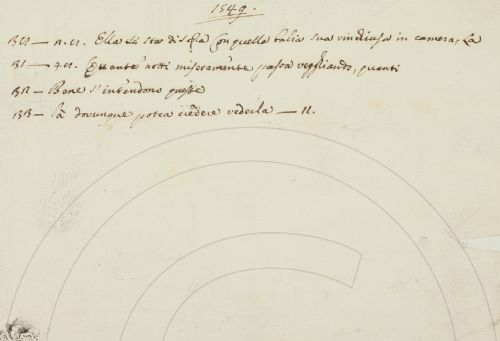 1549.
Ella si sta di sola con quella balia sua rinchiusa in camera, la
Quante notti miseramente passa vegghiando, quanti
Bene s'intendono queste
là dovunque potea credere vederla — 11.